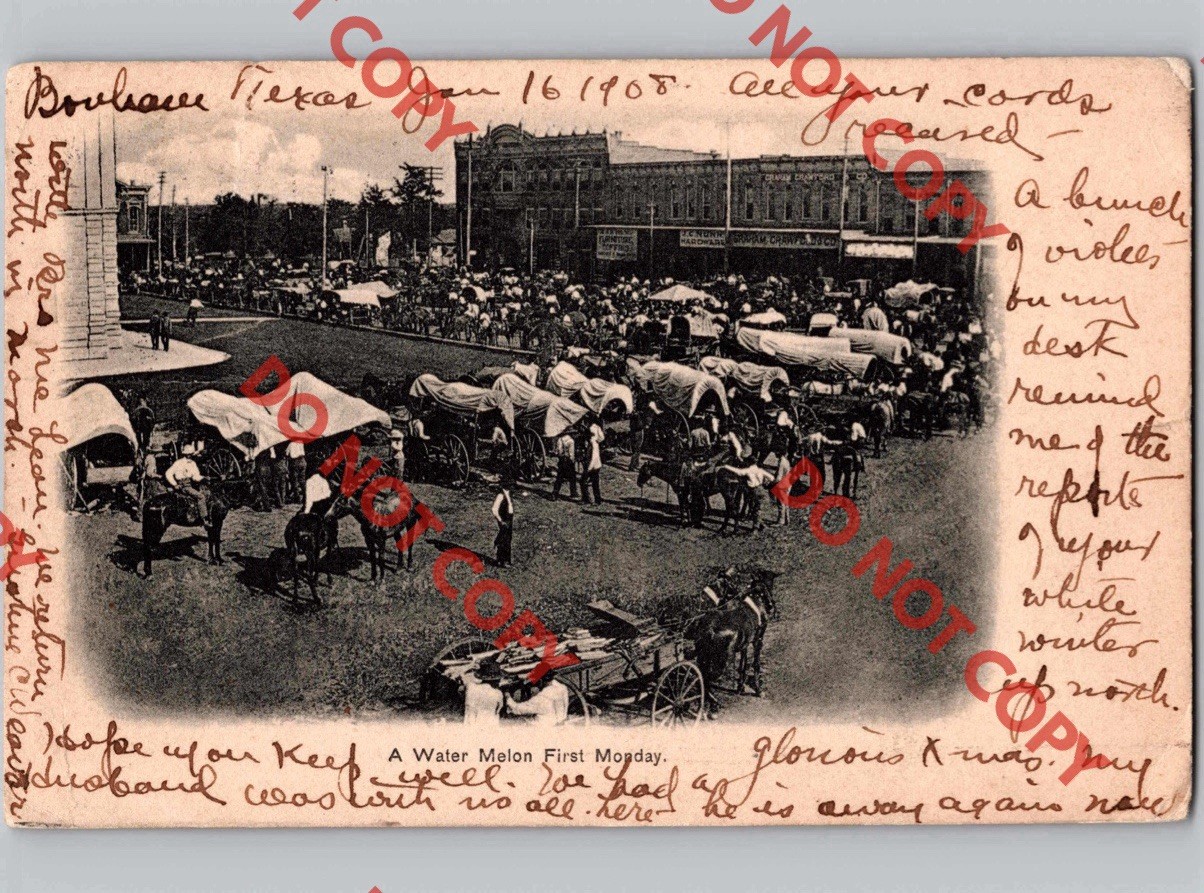 Bonham Texas Jan 16 1908. All your cards
received -
A bunch
of violets
on my
desk
remind
me of the
reports
of your
white
winter
up north.
GRAHAM CRAWFORD CO
FURNITURE
HARDWARE
GRAHAM, CRAWFORD & CO.
A Water Melon First Monday.
Hope you keep well. We had a glorious Xmas. My
Husband was with us all here - he is away again now
write me We return
north in March. -
DO NOT COPY
DO NOT COPY
DO NOT COPY
DO NOT COPY